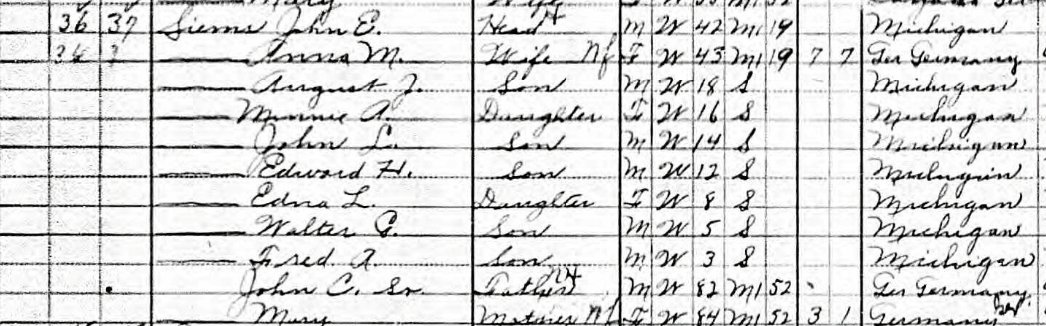 36 37 Siems John E. Head M W 42 M1 19 Michigan
Anna M. Wife F W 43 M1 19 7 7 Ger Germany
August J. Son M W 18 S Michigan
Minnie A. Daughter F W 16 S Michigan
John L. Son M W 14 S Michigan
Edward H. Son M W 12 S Michigan
Edna L. Daughter F W 8 S Michigan
Walter G. Son M W 5 S Michigan
Fred A. Son M W 3 S Michigan
John C. Sr. Father M W 82 M1 52 Ger Germany
Mary Mother F W 84 M1 52 3 1 Germany